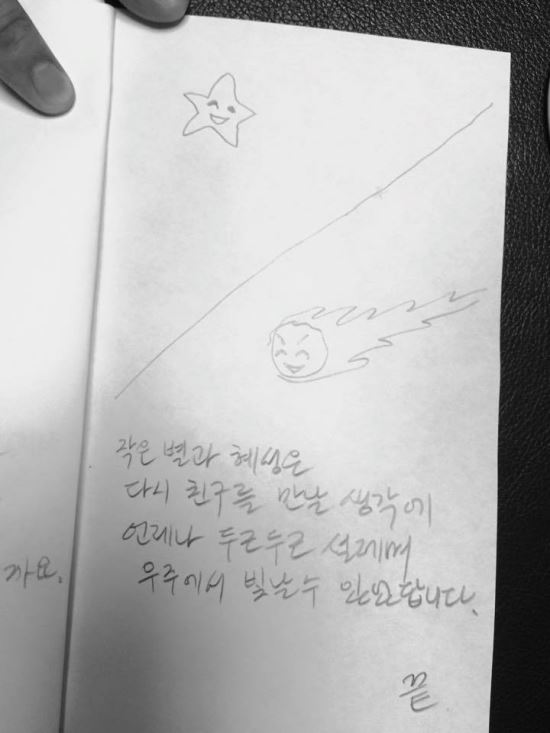 작은 별과 혜성은
다시 친구를 만날 생각에
언제나 두근두근 설레며
우주에서 빛날 수
까요.
끝